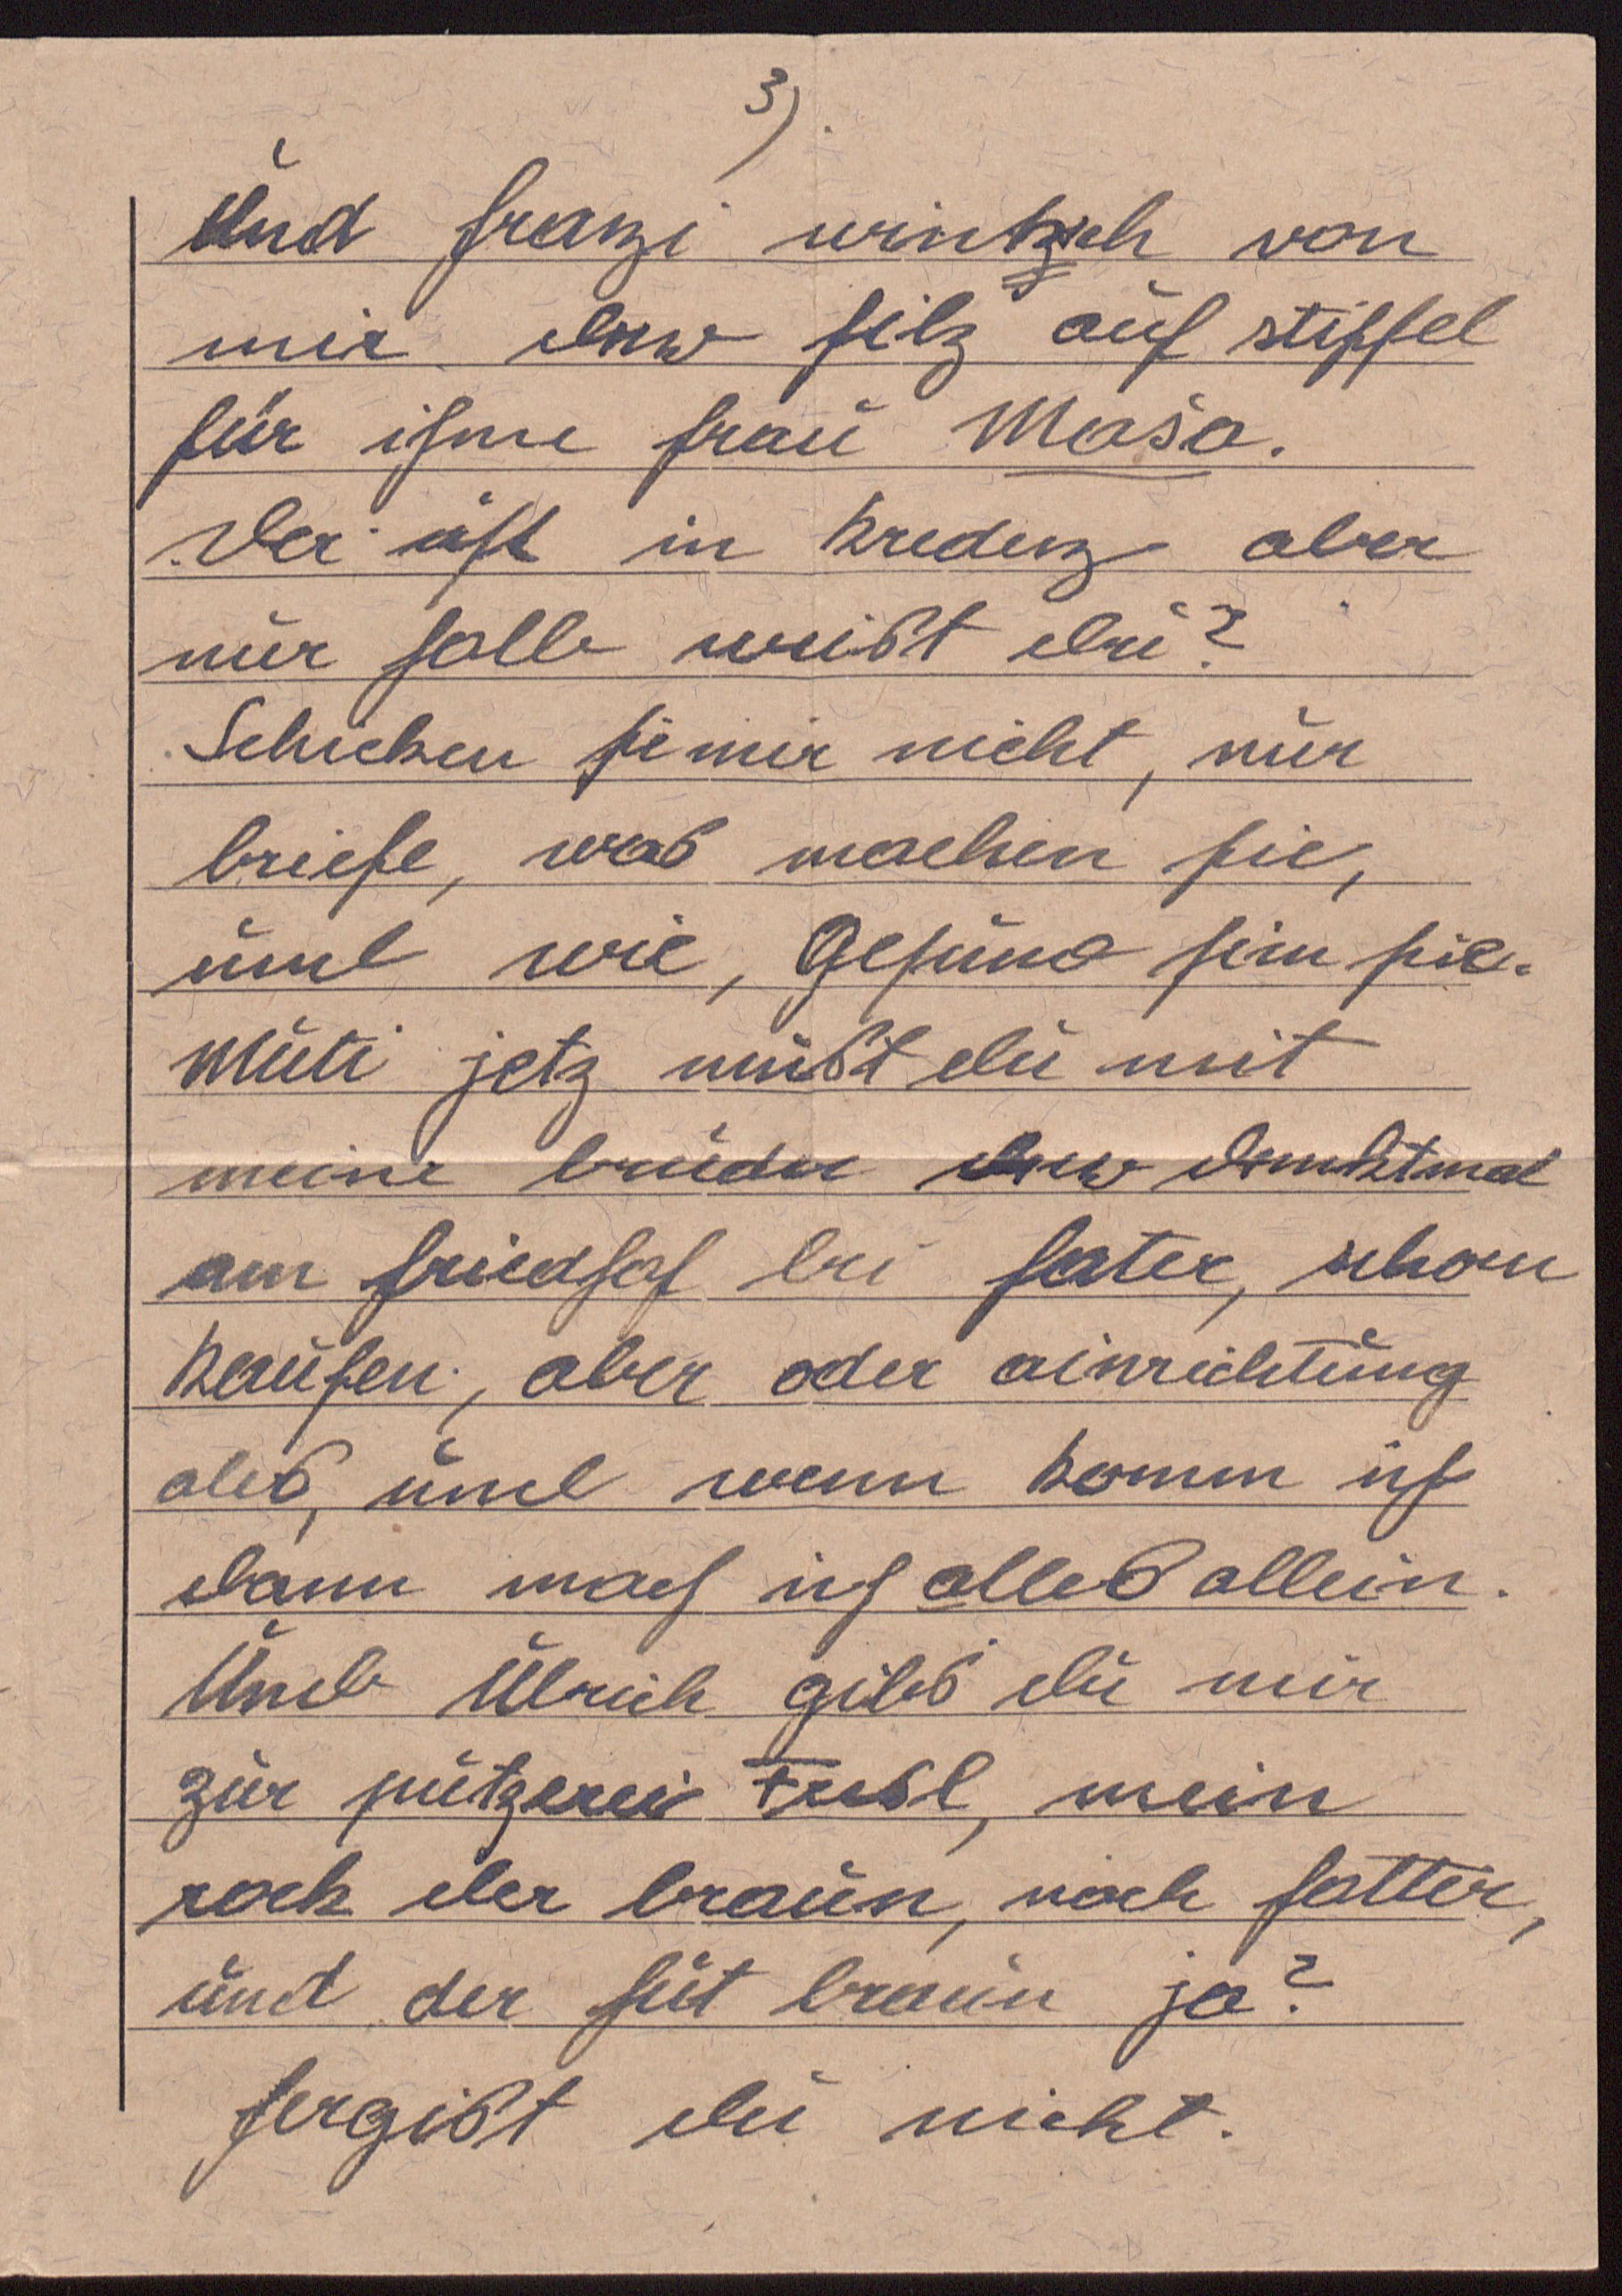 3).
Und franzi wintzch von
mir den filz auf stiffel
für ihme frau Maša.
Der ist in kredenz aber
nur halb weißt du?
Schicken sie mir nicht, nur
briefe, was machen sie,
und wie, Gesund sein sie.
Muti jetz mußt du mit
meine bruder den denktmal
am friedhof bei fater, schon
kaufen, aber oder ainrichtung
ales, und wenn komm ich
dann mach ich alles allein.
Und Ulrich gibs du mir
zur putzerei, mein
rock der braun, noch fatter,
und der hut braun ja?
fergißt du nicht.